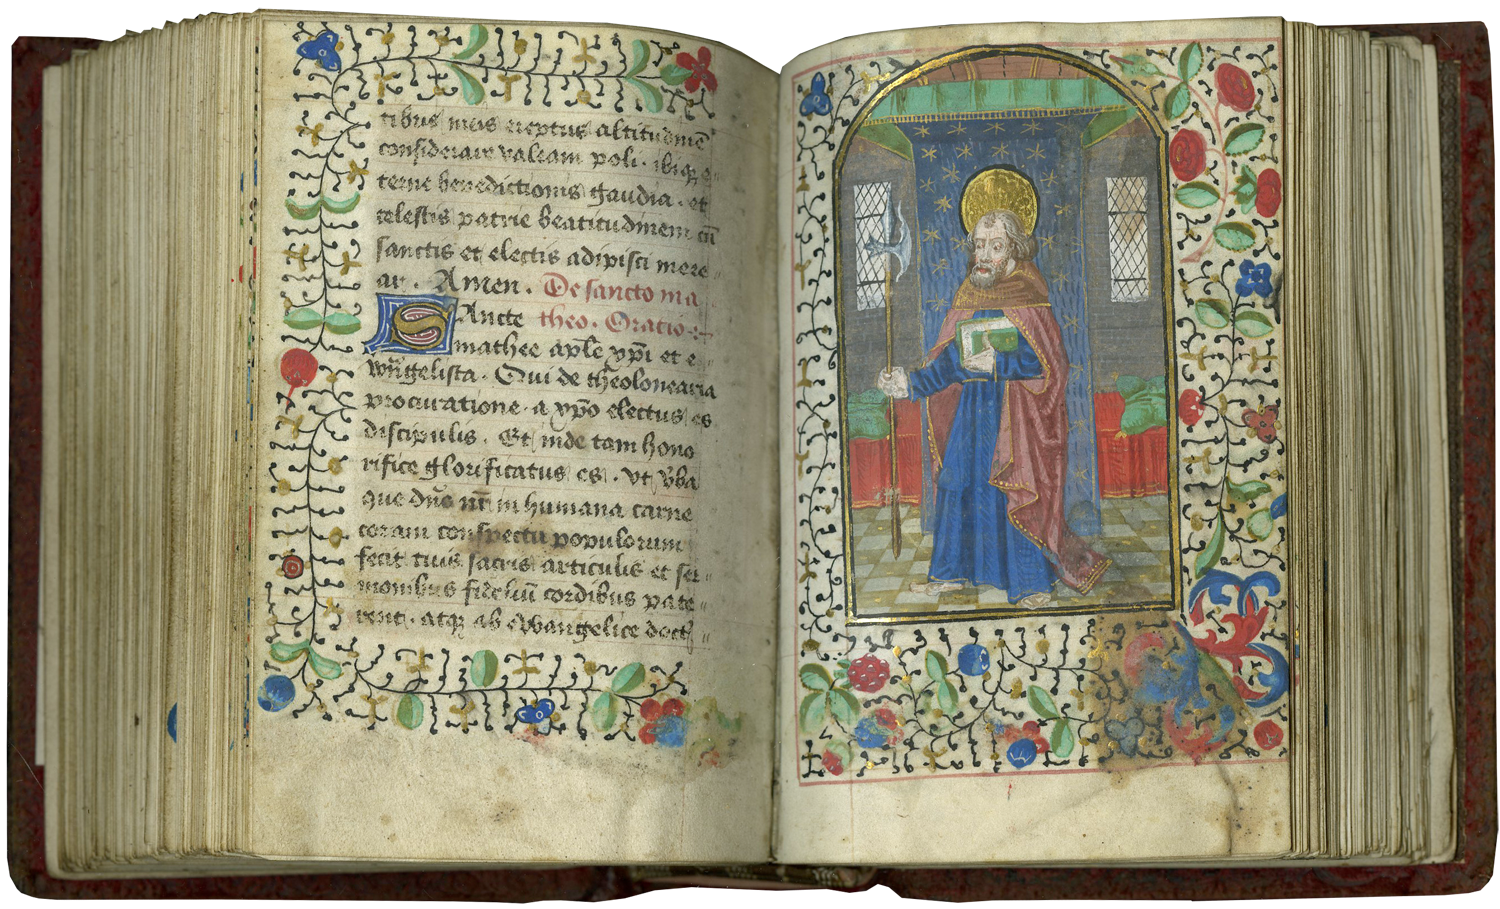 tibus meis ereptus altitudinē
considerare valeam poli. ibiq; e
terne benedictionis gaudia. et
celestis patrie beatitudinem cū
sanctis et electis adipisci mere
ar. Amen. De sancto ma
SAncte theo. Oratio
mathee aple xpi et e
wangelista. Qui de theolonearia
procuratione. a xpo electus es
discipulis. Et inde tam hono
rifice glorificatus es. vt vba
que dns nr in humana carne
coram conspectu populorum
fecit tuis sacris articulis et ser
monibus fidelium cordibus pate
rent. atq; ab ewangelice doct